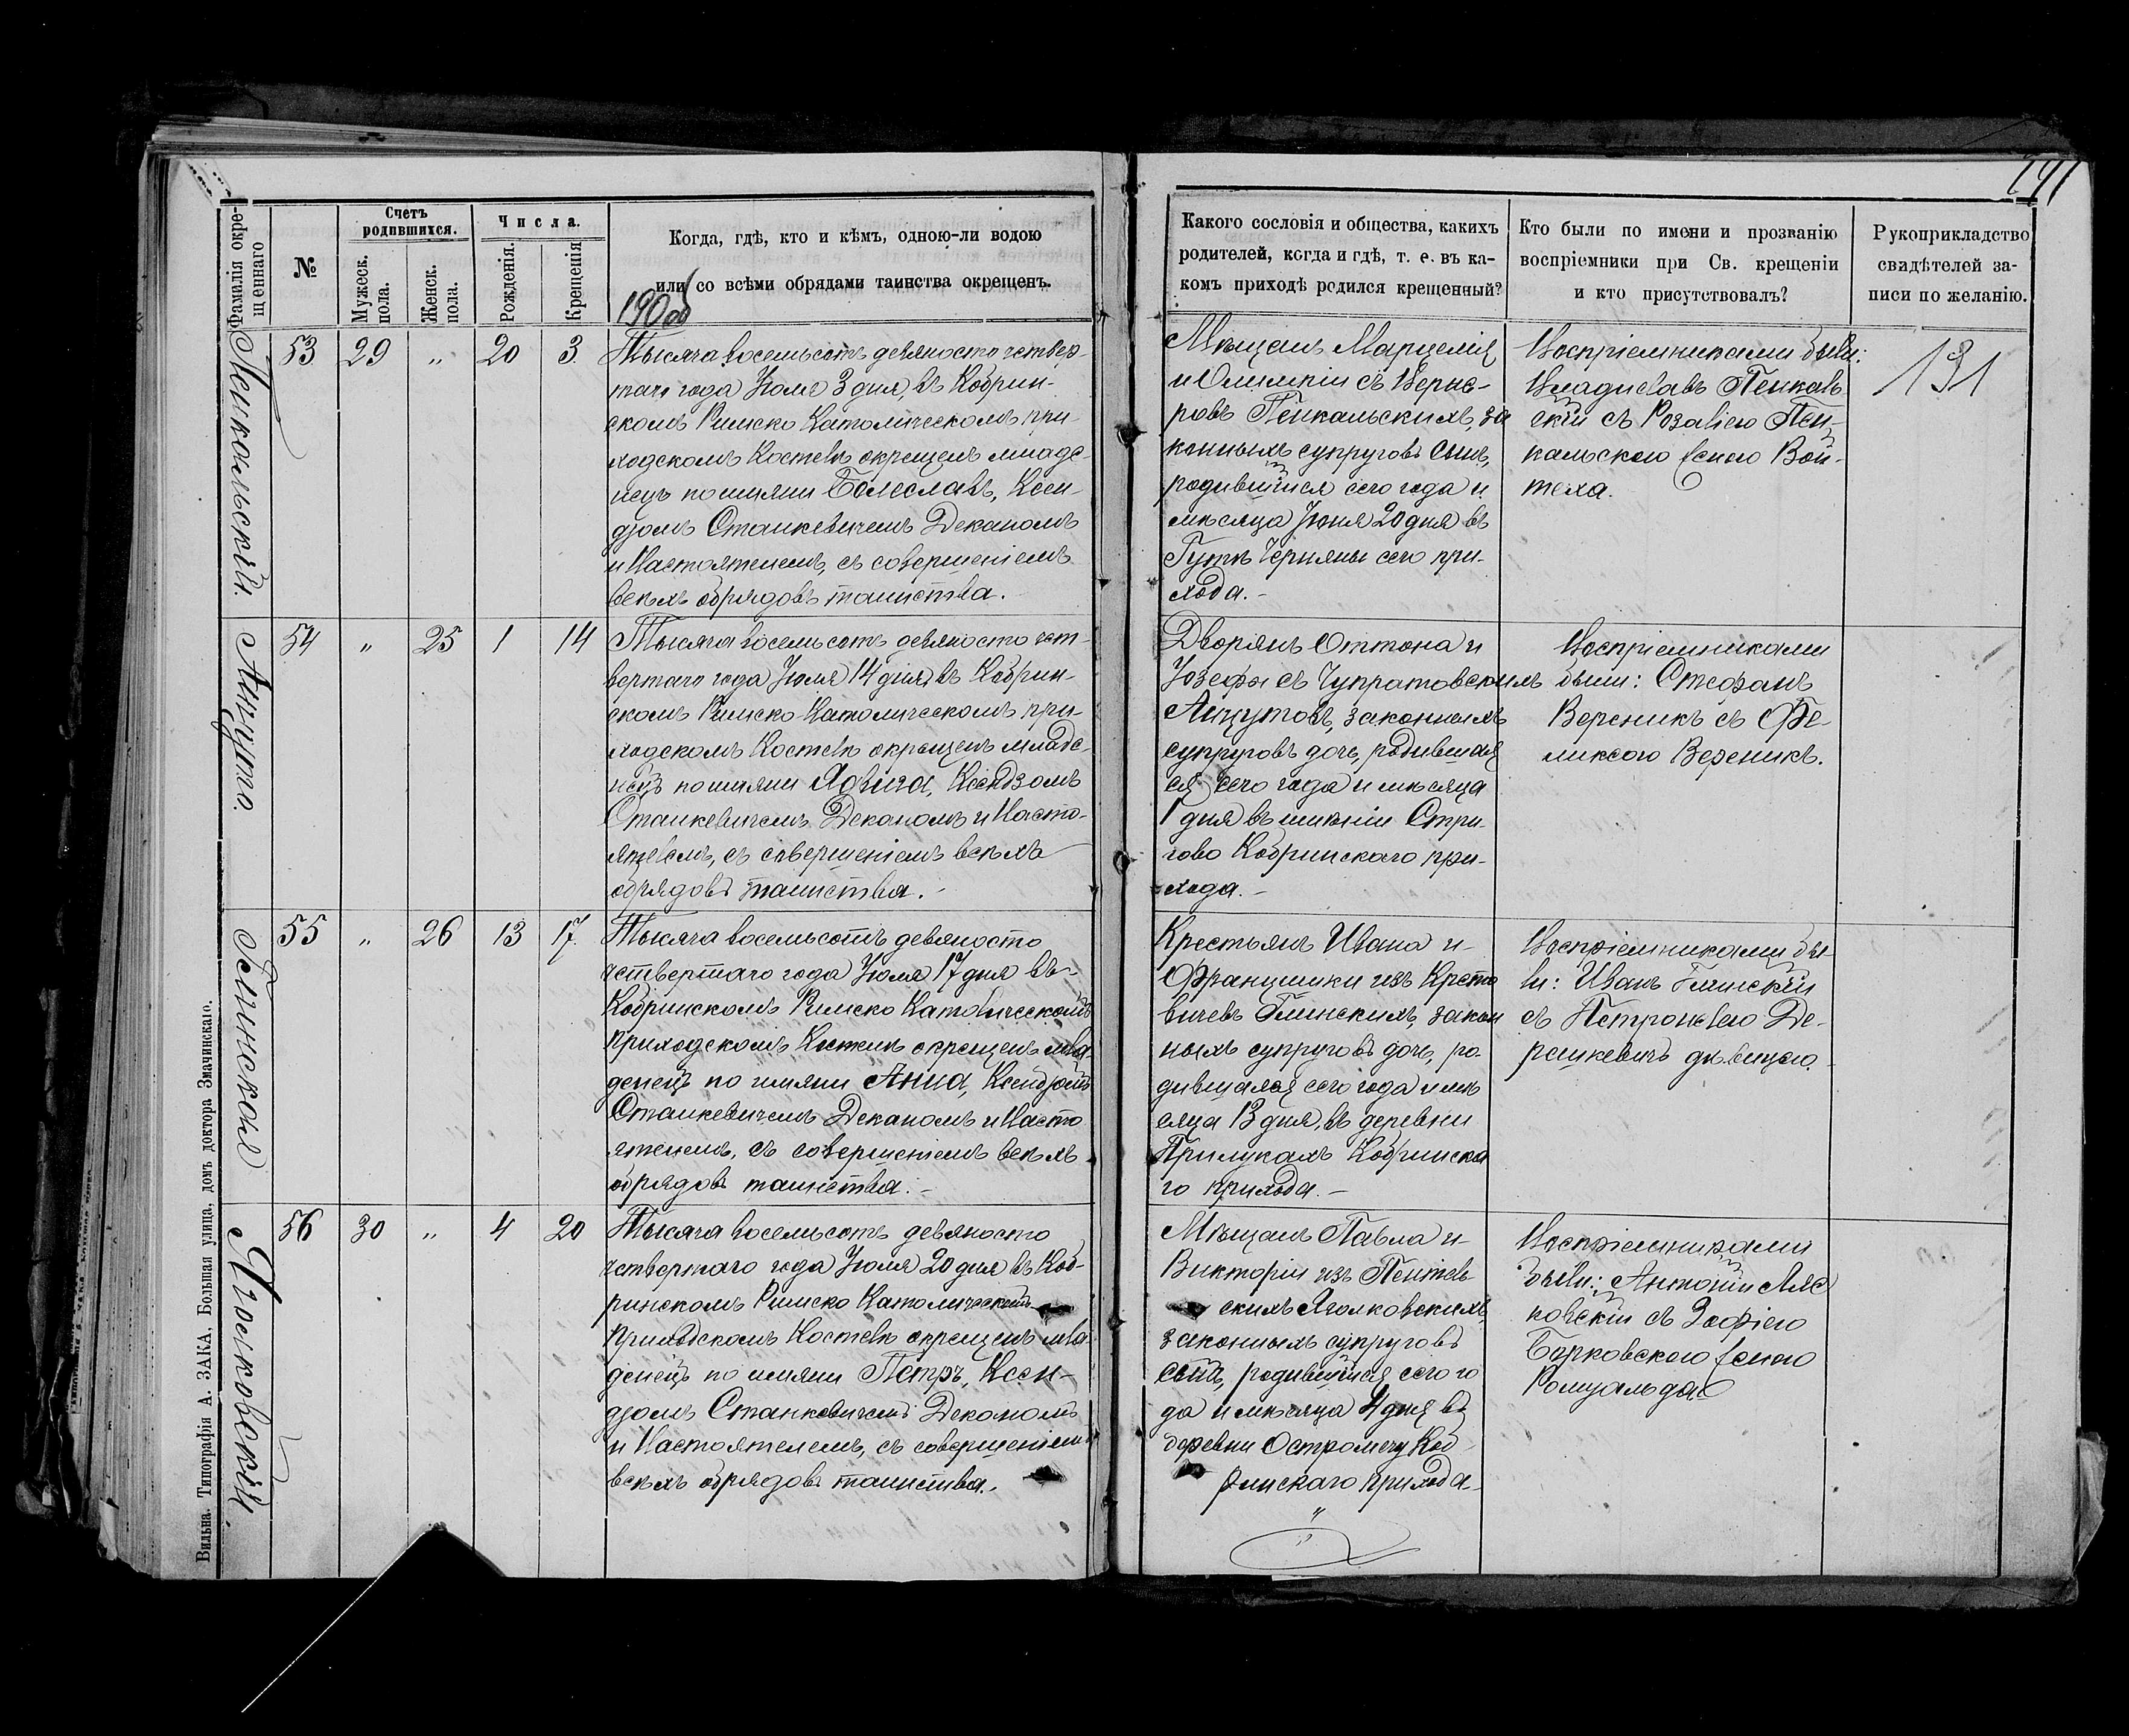 191
Фамилія окре-
щеннаго
№
Счетъ
родившихся.
Мужеск.
пола.
Женск.
пола.
Числа.
Рожденія.
Крещенія
Когда, гдѣ, кто и кѣмъ, одною-ли водою
или со всѣми обрядами таинства окрещенъ.
Какого сословія и общества, какихъ
родителей, когда и гдѣ, т. е. въ ка-
комъ приходѣ родился крещенный?
Кто были по имени и прозванію
воспріемники при Св. крещеніи
и кто присутствовалъ?
Рукоприкладство
свидѣтелей за-
писи по желанію.
Пенкальскій.
53
29
"
20
3
Тысяча восемьсотъ девяносто четвер-
таго года Іюля 3 дня, въ Кобрин-
скомъ Римско Католическомъ при-
ходскомъ Костелѣ окрещенъ младе-
нецъ по имяни Болеславъ, Ксен-
дзомъ Станкевичемъ Деканомъ
и Настоятелемъ, съ совершеніемъ
всѣхъ обрядовъ таинства.
Мѣщанъ Марцелія
и Олимпіи съ
Пенкальскихъ, за
конныхъ супруговъ сынъ,
родившійся сего года и
мѣсяца Іюня 20 дня въ
Гутѣ Черняны сего при-
хода.-
Воспріемниками были:
Владиславъ Пенкаль
скій съ Розаліею Пен-
кальскою женою Вой-
теха.
131
Анцуто.
54
"
25
1
14
Тысяча восемьсотъ девяносто чет-
вертаго года Іюля 14 дня, въ Кобрин-
скомъ Римско-Католическомъ при-
ходскомъ Костелѣ окрещенъ младе-
нецъ по имяни Ядвига, Ксендзомъ
Станкевичемъ Деканомъ и Насто-
ятелемъ, съ совершеніемъ всѣхъ
обрядовъ таинства.-
Дворянъ Оттона и
Юзефы съ Чупратовскихъ
Анцутовъ, законныхъ
супруговъ дочь, родившая
ся сего года и мѣсяца
1 дня въ имѣніи Стри-
гово Кобринскаго при-
хода.-
Воспріемниками
были: Стефанъ
Вереникъ съ Фе-
ликсою Вереникъ.
Глинская
55
"
26
13
17.
Тысяча восемьсотъ девяносто
четвертаго года Іюля 17 дня въ
Кобринскомъ Римско Католическомъ
приходскомъ Костелѣ окрещенъ мла
денецъ по имяни Анна, Ксендзомъ
Станкевичемъ Деканомъ и Насто
ятелемъ, съ совершеніемъ всѣхъ
обрядовъ таинства.-
Крестьянъ Ивана и
Францишки изъ Крето
вичевъ Глинскихъ, закон
ныхъ супруговъ дочь, ро-
дившаяся сего года и мѣ
сяца 13 дня, въ деревни
Прилукахъ Кобринска
го прихода.-
Воспріемниками бы-
ли: Иванъ Глинскій
съ Петронелею Де-
решкевичъ дѣвицею.
Яголковскій.
56
30
"
4
20
Тысяча восемьсотъ девяносто
четвертаго года Іюля 20 дня въ Коб-
ринскомъ Римско Католическомъ
приходскомъ Костелѣ окрещенъ мла
денецъ по имяни Петръ, Ксен-
дзомъ Станкевичемъ Деканомъ
и Настоятелемъ, съ совершеніемъ
всѣхъ обрядовъ таинства.
Мѣщанъ Павла и
Викторіи изъ Пентев
скихъ Яголковскихъ,
законныхъ супруговъ
сынъ, родившійся сего го
да и мѣсяца 4 дня въ
деревни Остромечу Коб
ринскаго прихода.
Воспріемниками
были: Антоній Ляс
ковскій съ Зофіею
Борковскою женою
Ромуальда
Вильна. Типографія А. ЗАКА, Большая улица, домъ доктора Змачинскаго.